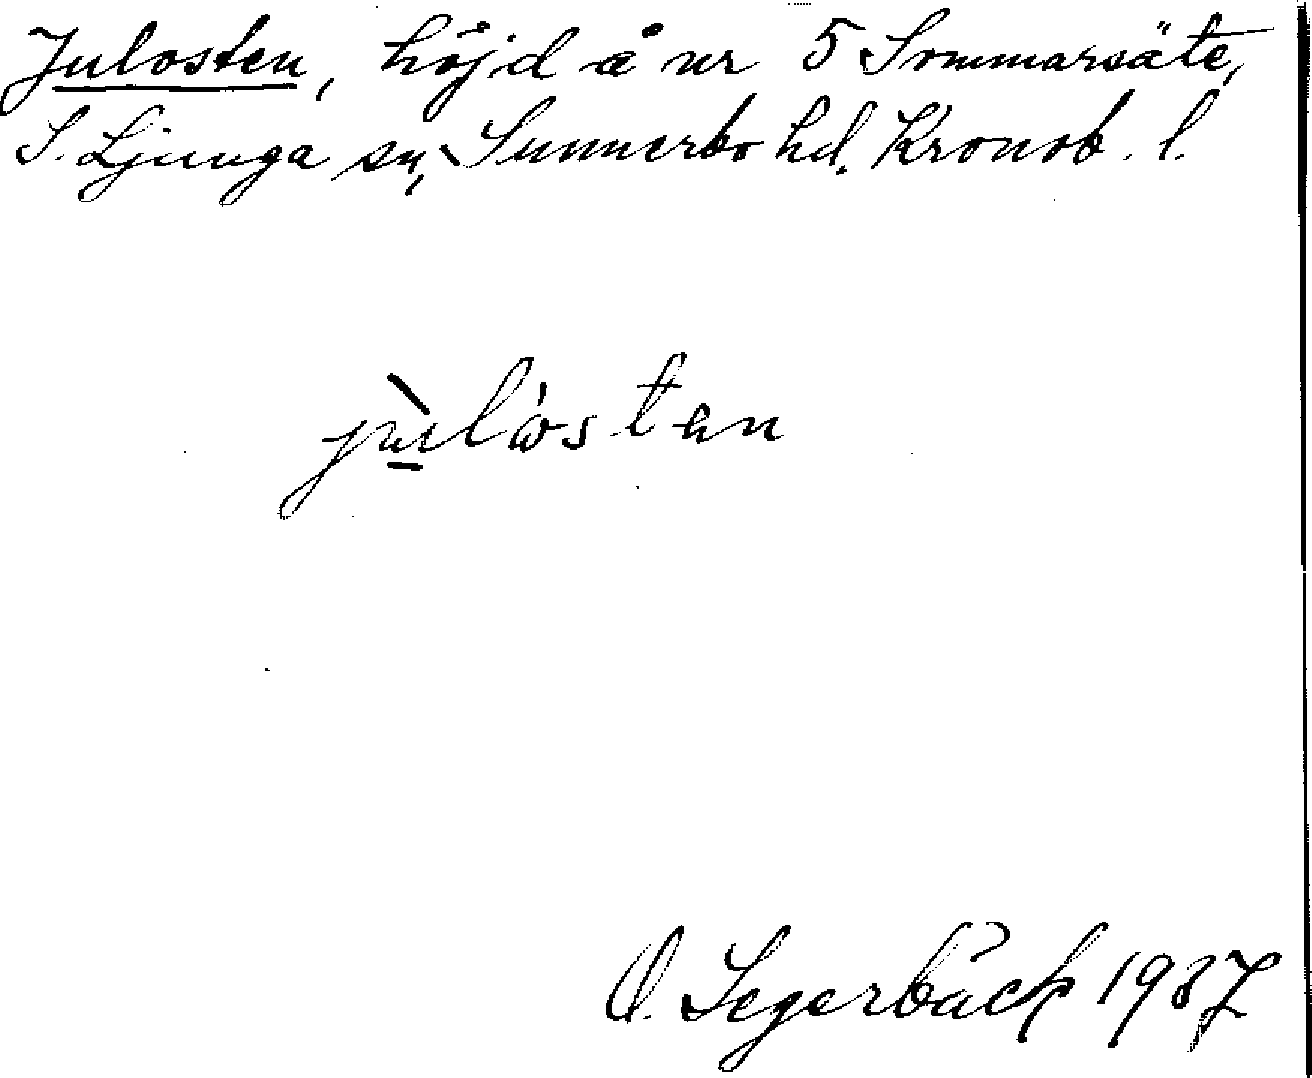 Julosten, höjd å nr 5 Sommarsäte,
S. Ljunga sn, Sunnerbo hd. Kronob. l.
jùlòstan
O. Segerbäck 1937